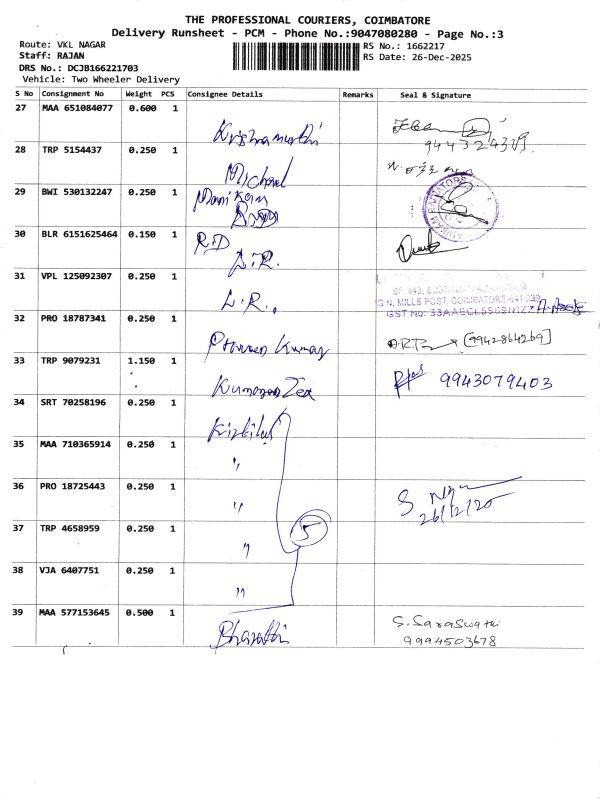 THE PROFESSIONAL COURIERS, COIMBATORE
Delivery Runsheet - PCM - Phone No.:9047080280 - Page No.:3
Route: VKL NAGAR
RS No.: 1662217
Staff: RAJAN
RS Date: 26-Dec-2025
DRS No.: DCJB166221703
Vehicle: Two Wheeler Delivery
S No Consignment No Weight PCS Consignee Details Remarks Seal & Signature
27 MAA 651084077 0.600 1 Krishnamurthi
28 TRP 5154437 0.250 1 Michael
29 BWI 530132247 0.250 1 Manikam
30 BLR 6151625464 0.150 1 R.D
31 VPL 125092307 0.250 1 L.R.,
G.N. MILLS POST, COIMBATORE-641 029
32 PRO 18787341 0.250 1 Praveen Kumar [9942864269]
33 TRP 9079231 1.150 1 9943079403
34 SRT 70258196 0.250 1
35 MAA 710365914 0.250 1 "
36 PRO 18725443 0.250 1 "
26/12/25
37 TRP 4658959 0.250 1 " 5
38 VJA 6407751 0.250 1 "
39 MAA 577153645 0.500 1 Bharathi S. Saraswathi
9994503678